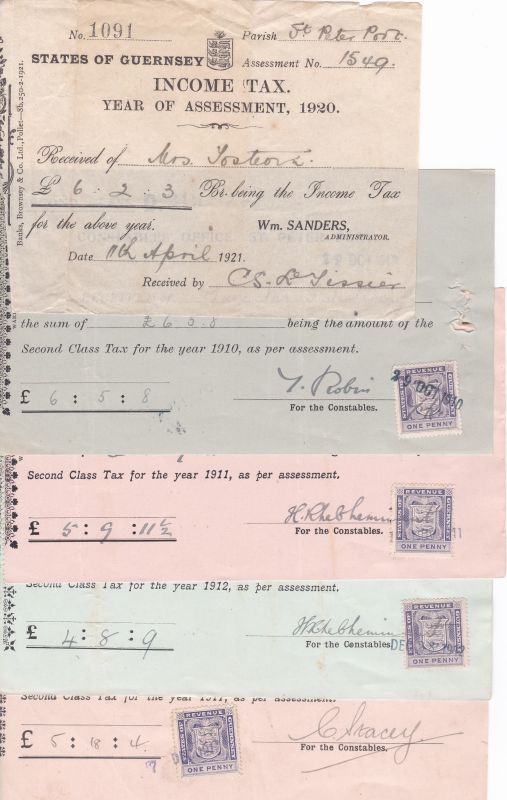 No. 1091 Parish St Peter Port.
STATES OF GUERNSEY Assessment No. 1549.
INCOME TAX.
YEAR OF ASSESSMENT, 1920.
Banks, Brownsey & Co. Ltd., Pollet—Sb.250-2-1921.
Received of Mrs.
£ 6 . 2 . 3 Br. being the Income Tax
for the above year. Wm. SANDERS,
ADMINISTRATOR.
Date 11th April 1921.
Received by
the sum of £6 5. 8 being the amount of the
Second Class Tax for the year 1910, as per assessment.
£ 6 : 5 : 8 : J. Robin
For the Constables.
29 OCT 1910
STATES OF REVENUE GUERNSEY
ONE PENNY
Second Class Tax for the year 1911, as per assessment.
£ 5 : 9 : 11½
For the Constables.
STATES OF REVENUE GUERNSEY
ONE PENNY
11
Second Class Tax for the year 1912, as per assessment.
£ 4 : 8 : 9
For the Constables.
DEC
STATES OF REVENUE GUERNSEY
ONE PENNY
Second Class Tax for the year 1911, as per assessment.
£ 5 : 18 : 4. C Tracey
For the Constables.
STATES OF REVENUE GUERNSEY
ONE PENNY